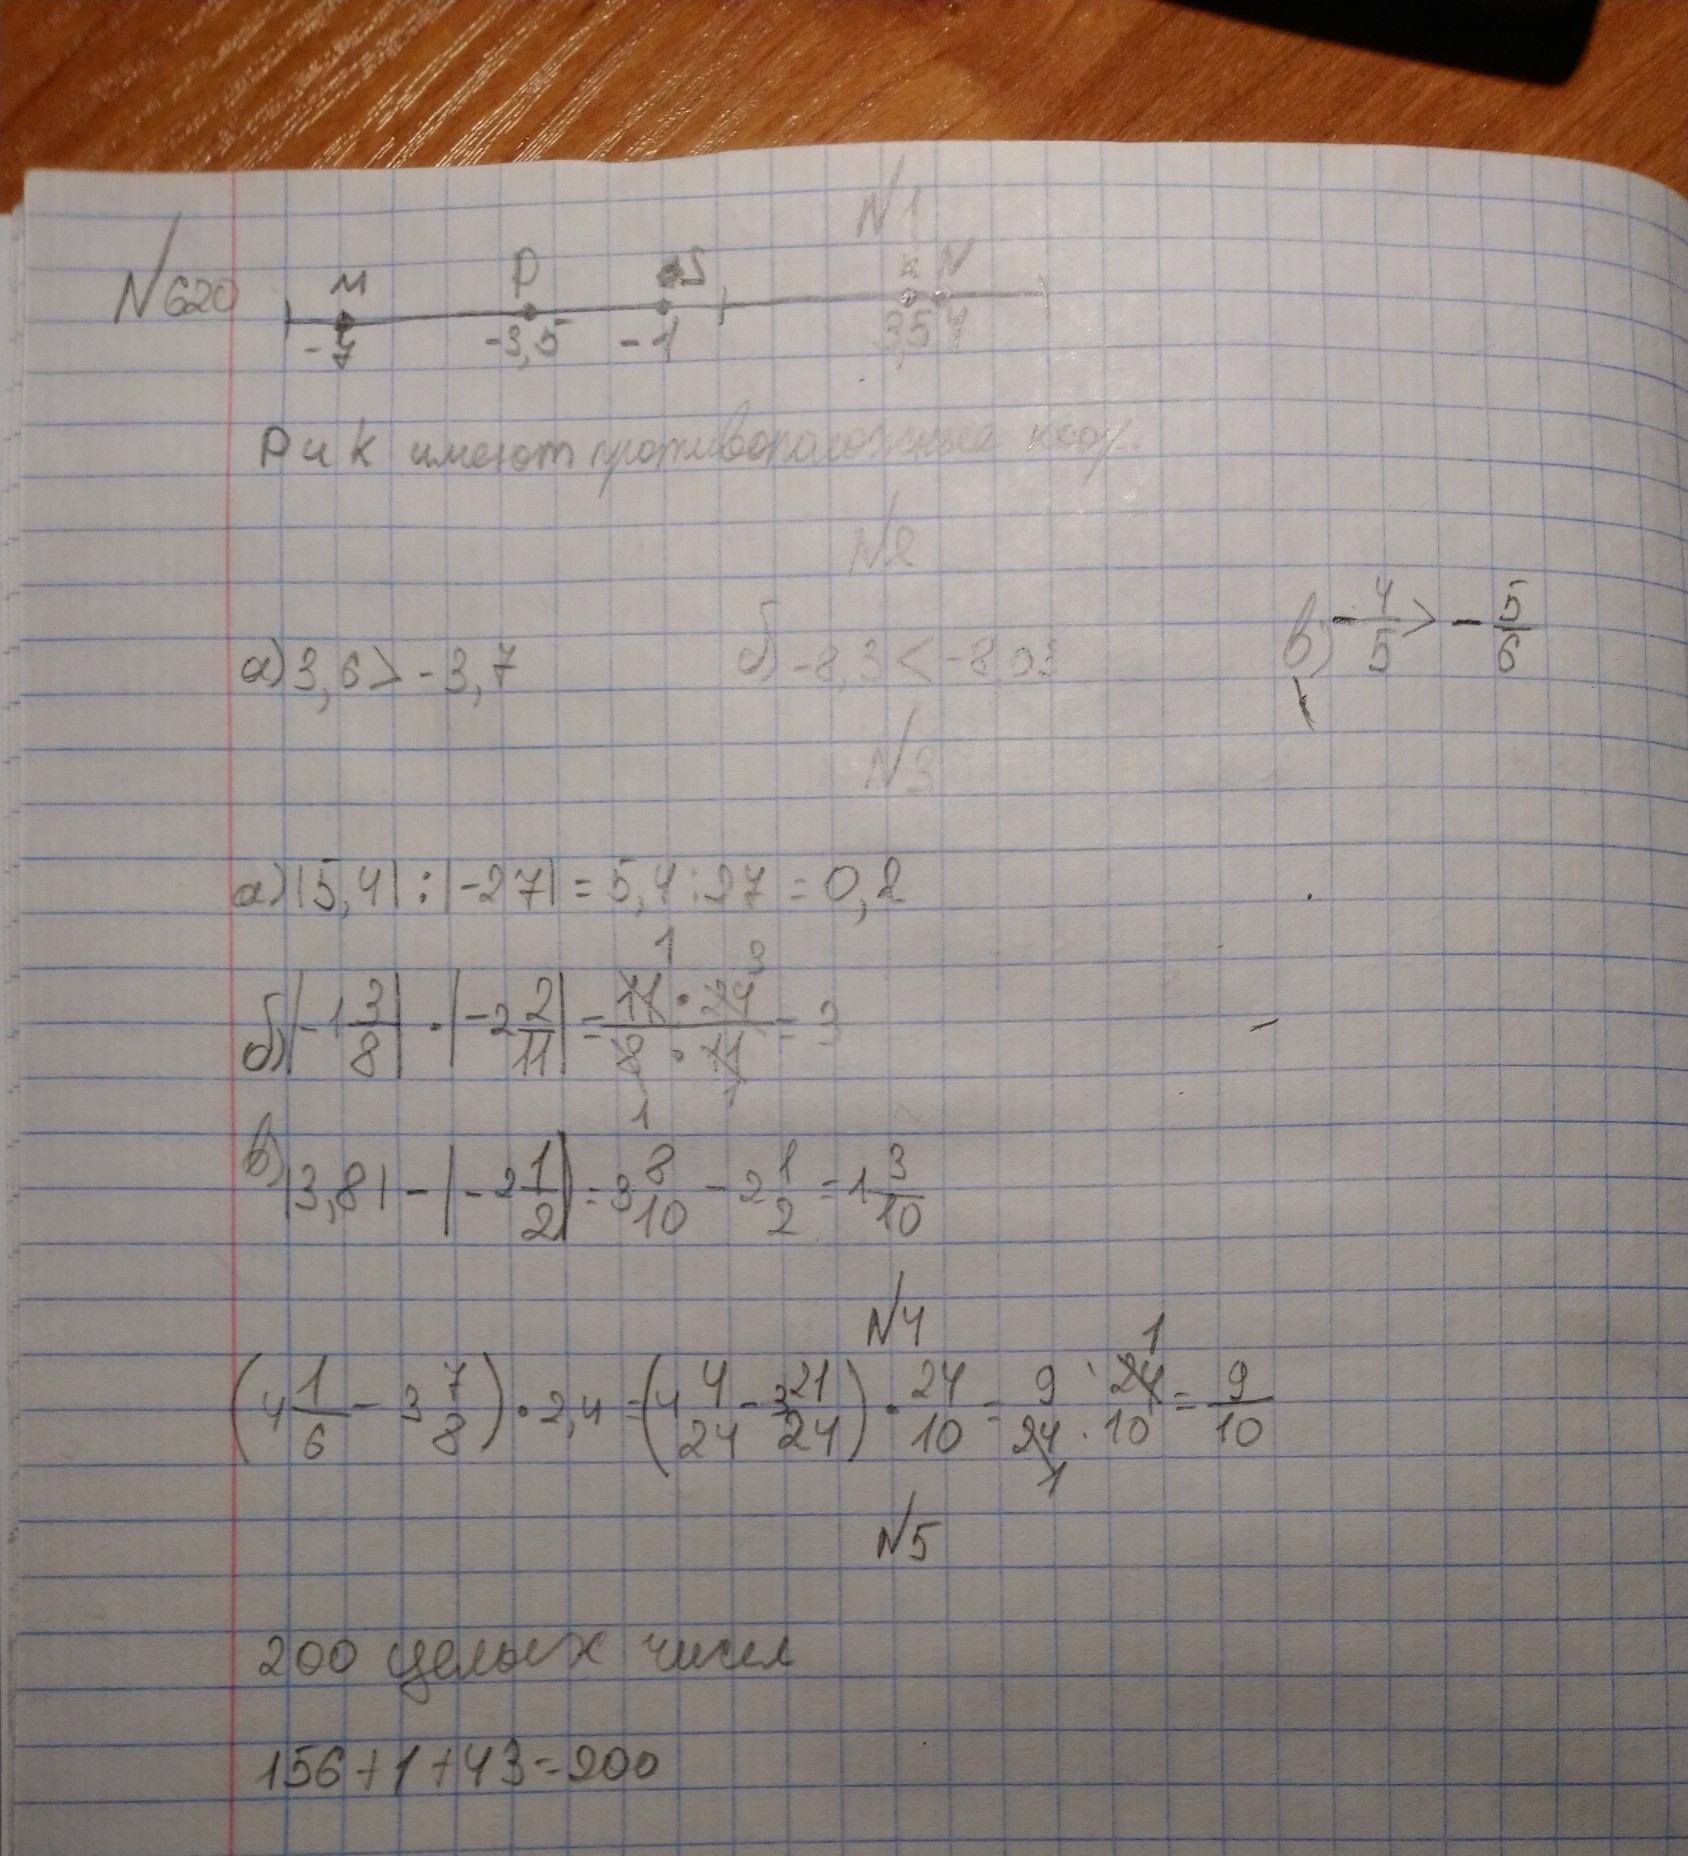 N1
N620 M P S K N
-7 -3,5 -1 3,5 4
P и K имеют противоположные коор.
N2
а) 3,6 > -3,7 б) -8,3 < -8,03 в) -4/5 > -5/6
N3
а) |5,4| : |-27| = 5,4 : 27 = 0,2
б) |-1 3/8| · |-2 2/11| = 11 · 24 / 8 · 11 = 3
в) |3,8| - |-2 1/2| = 3 8/10 - 2 1/2 = 1 3/10
N4
(4 1/6 - 3 7/8) · 2,4 = (4 4/24 - 3 21/24) · 24/10 = 9 · 24 / 24 · 10 = 9/10
N5
200 целых чисел
156+1+43=200